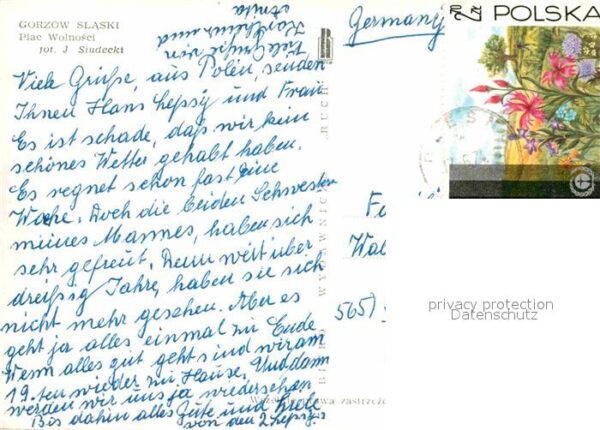 GORZÓW ŚLĄSKI
Plac Wolności
fot. J. Siudecki
Viele Grüße, aus Polen, senden
Ihnen Hans Lepsy und Frau
Es ist schade, daß wir kein
schönes Wetter gehabt haben.
Es regnet schon fast eine
Woche. Doch die beiden Schwestern
meines Mannes, haben sich
sehr gefreut. Denn weit über
dreißig Jahre, haben sie sich
nicht mehr gesehen. Aber es
geht ja alles einmal zu Ende
Wenn alles gut geht sind wir am
19.ten wieder zu Hause. Und dann
werden wir uns ja wiedersehen
Bis dahin alles Gute und Grüße
von den 2 Lepsy's
Viele Grüße von
und
RUCH
Germany
POLSKA
Wa
565)
privacy protection
Datenschutz